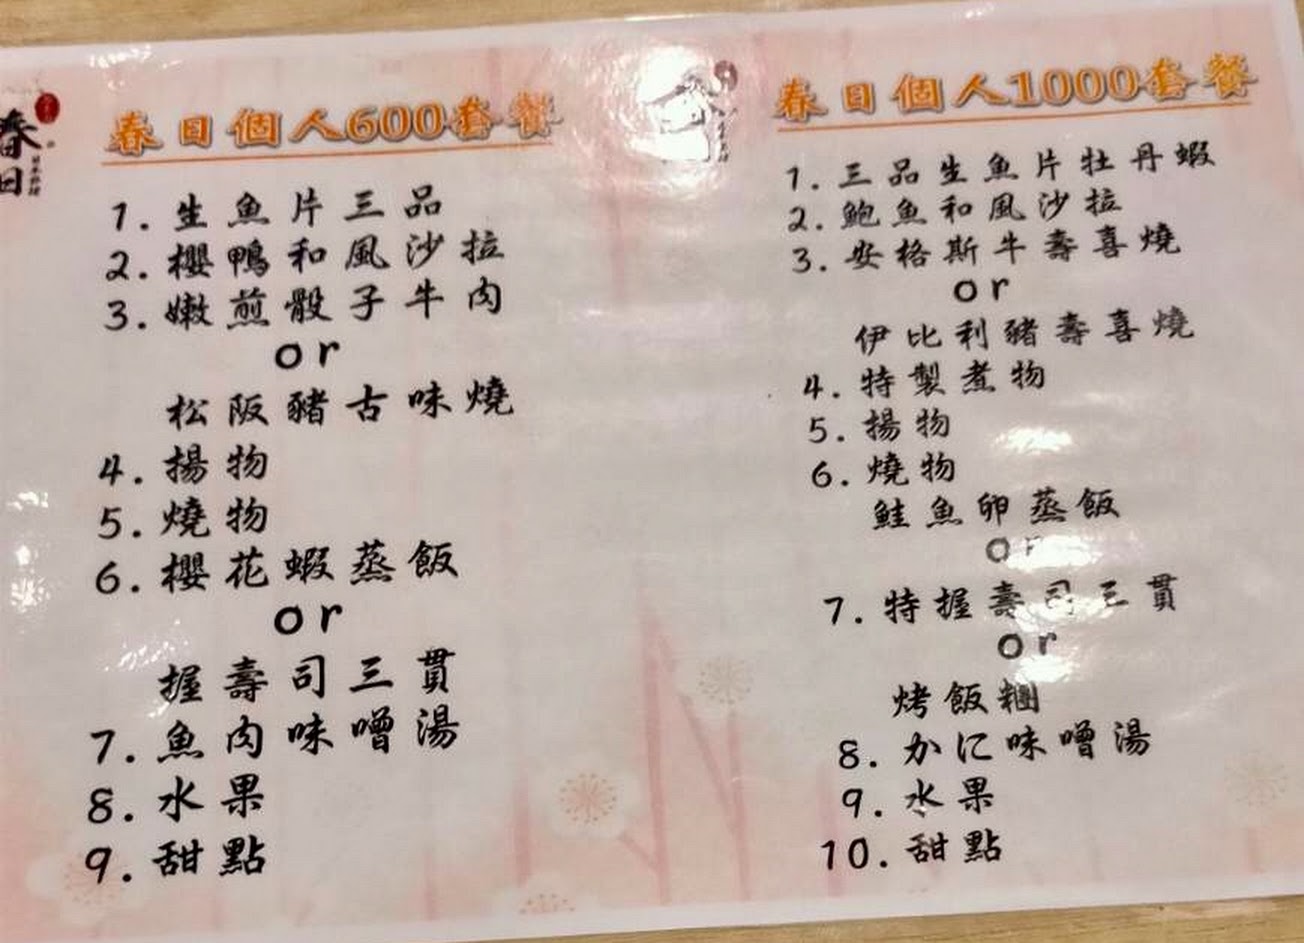 春日
春日個人600套餐
1. 生魚片三品
2. 櫻鴨和風沙拉
3. 嫩煎骰子牛肉
or
松阪豬古味燒
4. 揚物
5. 燒物
6. 櫻花蝦蒸飯
or
握壽司三貫
7. 魚肉味噌湯
8. 水果
9. 甜點
春日個人1000套餐
1. 三品生魚片牡丹蝦
2. 鮑魚和風沙拉
3. 安格斯牛壽喜燒
or
伊比利豬壽喜燒
4. 特製煮物
5. 揚物
6. 燒物
鮭魚卵蒸飯
or
7. 特握壽司三貫
or
烤飯糰
8. かに味噌湯
9. 水果
10. 甜點